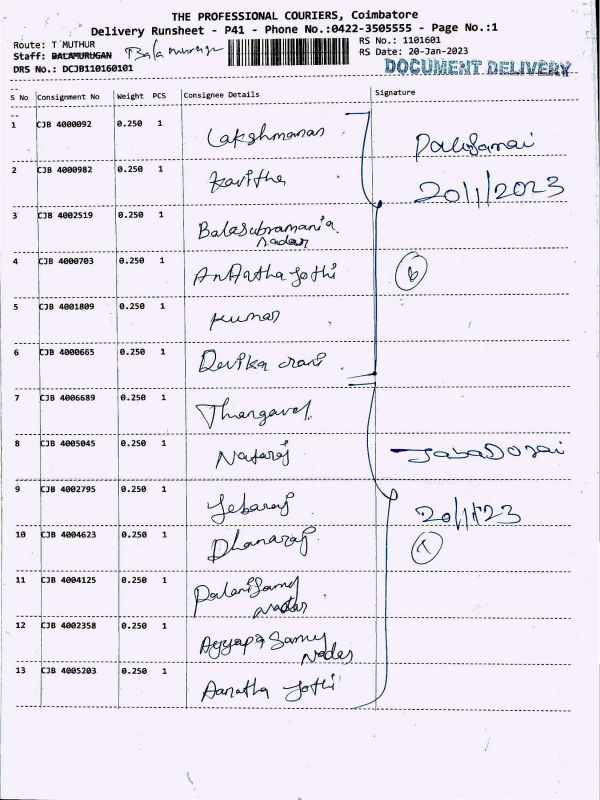 THE PROFESSIONAL COURIERS, Coimbatore
Delivery Runsheet - P41 - Phone No.:0422-3505555 - Page No.:1
Route: T MUTHUR
RS No.: 1101601
Staff: BALAMURUGAN Balamurugan
RS Date: 20-Jan-2023
DRS No.: DCJB110160101
DOCUMENT DELIVERY
S No Consignment No Weight PCS Consignee Details Signature
1 CJB 4000092 0.250 1 Lakshmanan
2 CJB 4000982 0.250 1 Kavitha
20/1/2023
3 CJB 4002519 0.250 1 Balasubramania
nadar
4 CJB 4000703 0.250 1 Jothi
6
5 CJB 4001809 0.250 1 Kumar
6 CJB 4000665 0.250 1 Devika rani
7 CJB 4006689 0.250 1 Thangavel
8 CJB 4005045 0.250 1 Nataraj
9 CJB 4002795 0.250 1 Jebaraj
10 CJB 4004623 0.250 1 Dhanaraj
11 CJB 4004125 0.250 1 Palanisamy
Nadar
12 CJB 4002358 0.250 1 Ayyapa Samy
Nadar
13 CJB 4005203 0.250 1 Jothi